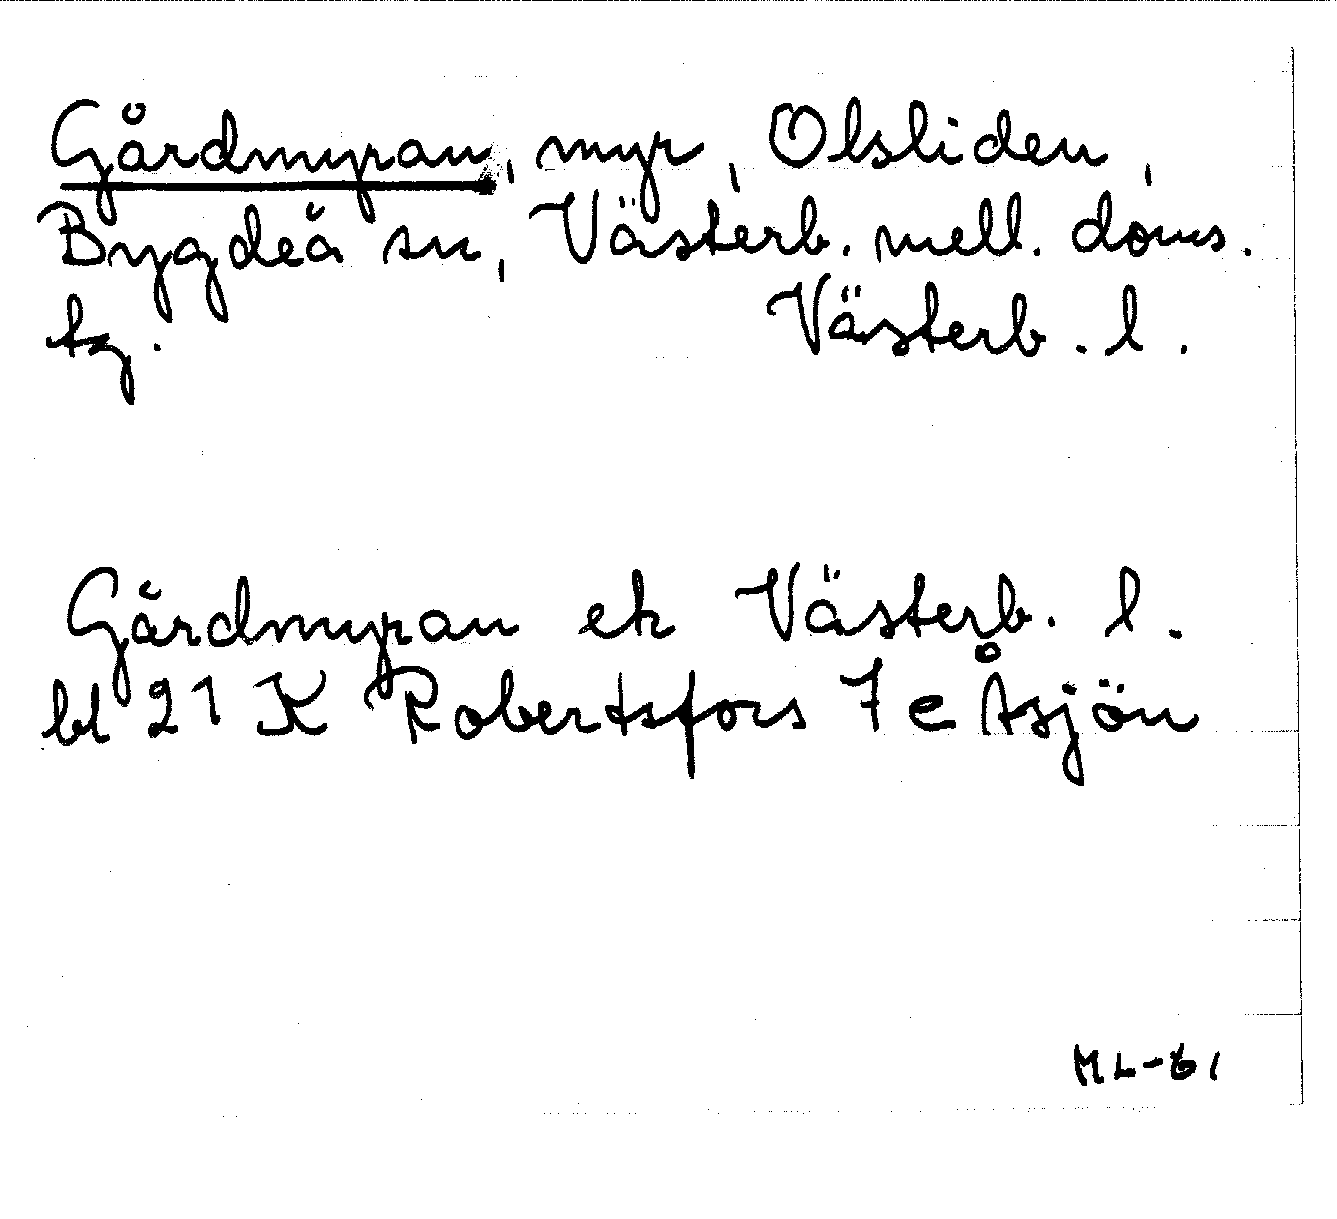 Gårdmyran, myr, Olsliden,
Bygdeå sn, Västerb. mell. doms.
tg. Västerb. l.
Gårdmyran ek Västerb. l.
bl 21 K Robertsfors 7 e Åsjön
ML-81